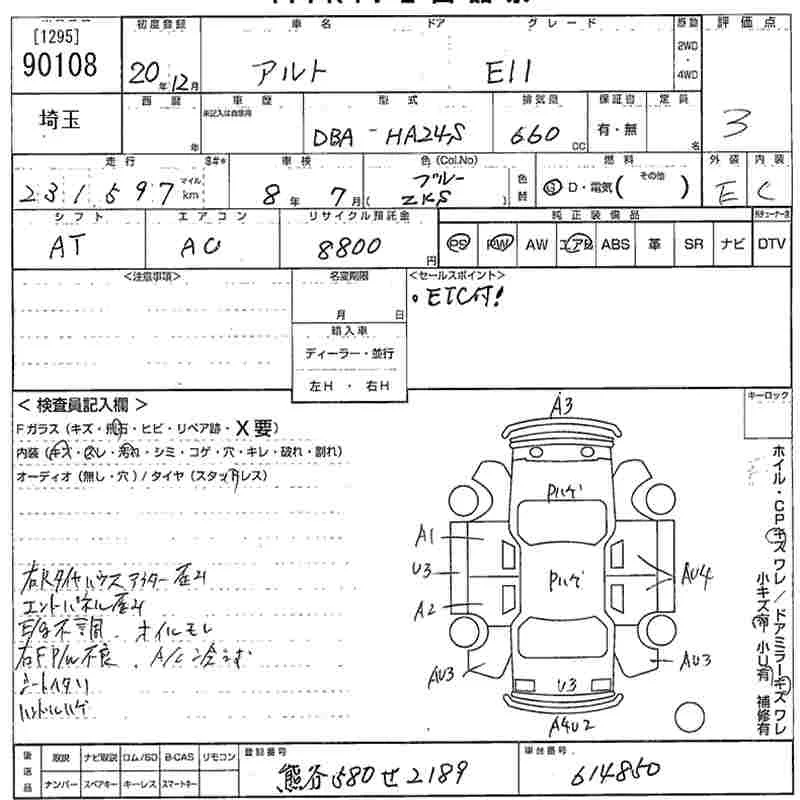 [1295]
90108
初度登録
20年12月
車名
アルト
ドア
グレード
E11
駆動
2WD
・
4WD
評価点
3
埼玉
西暦
年
車歴
未記入は自家用
型式
DBA-HA24S
排気量
660cc
保証書
有・無
定員
名
走行
231597
マイル
km
車検
8年7月
色(Col.No)
ブルー
(ZKS)
色替
燃料
G D・電気(その他)
外装
E
内装
C
シフト
AT
エアコン
AC
リサイクル預託金
8800円
純正装備品
PS PW AW エアB ABS 革 SR ナビ
DTV
<注意事項>
名変期限
月 日
輸入車
ディーラー・並行
左H・右H
<セールスポイント>
・ETC付!
<検査員記入欄>
Fガラス(キズ・飛石・ヒビ・リペア跡・X要)
内装(キズ・スレ・汚れ・シミ・コゲ・穴・キレ・破れ・割れ)
オーディオ(無し・穴)/タイヤ(スタッドレス)
右Rタイヤハウスアウター歪み
エンドパネル歪み
E/g不調. オイルモレ
右F P/w不良. A/C冷えず
シートイタミ
ハンドルハゲ
キーロック
A3
Pハゲ
A1
U3
A2
Pハゲ
AU4
AU3
AU3
U3
A4U2
ホイル・CPキズワレ/ドアミラーキズワレ
小キズ有 小U有 補修有
後送品
取説 ナビ取説 ロム/SD B-CAS リモコン
ナンバー スペアキー キーレス スマートキー
登録番号
熊谷580せ2189
車台番号
614850